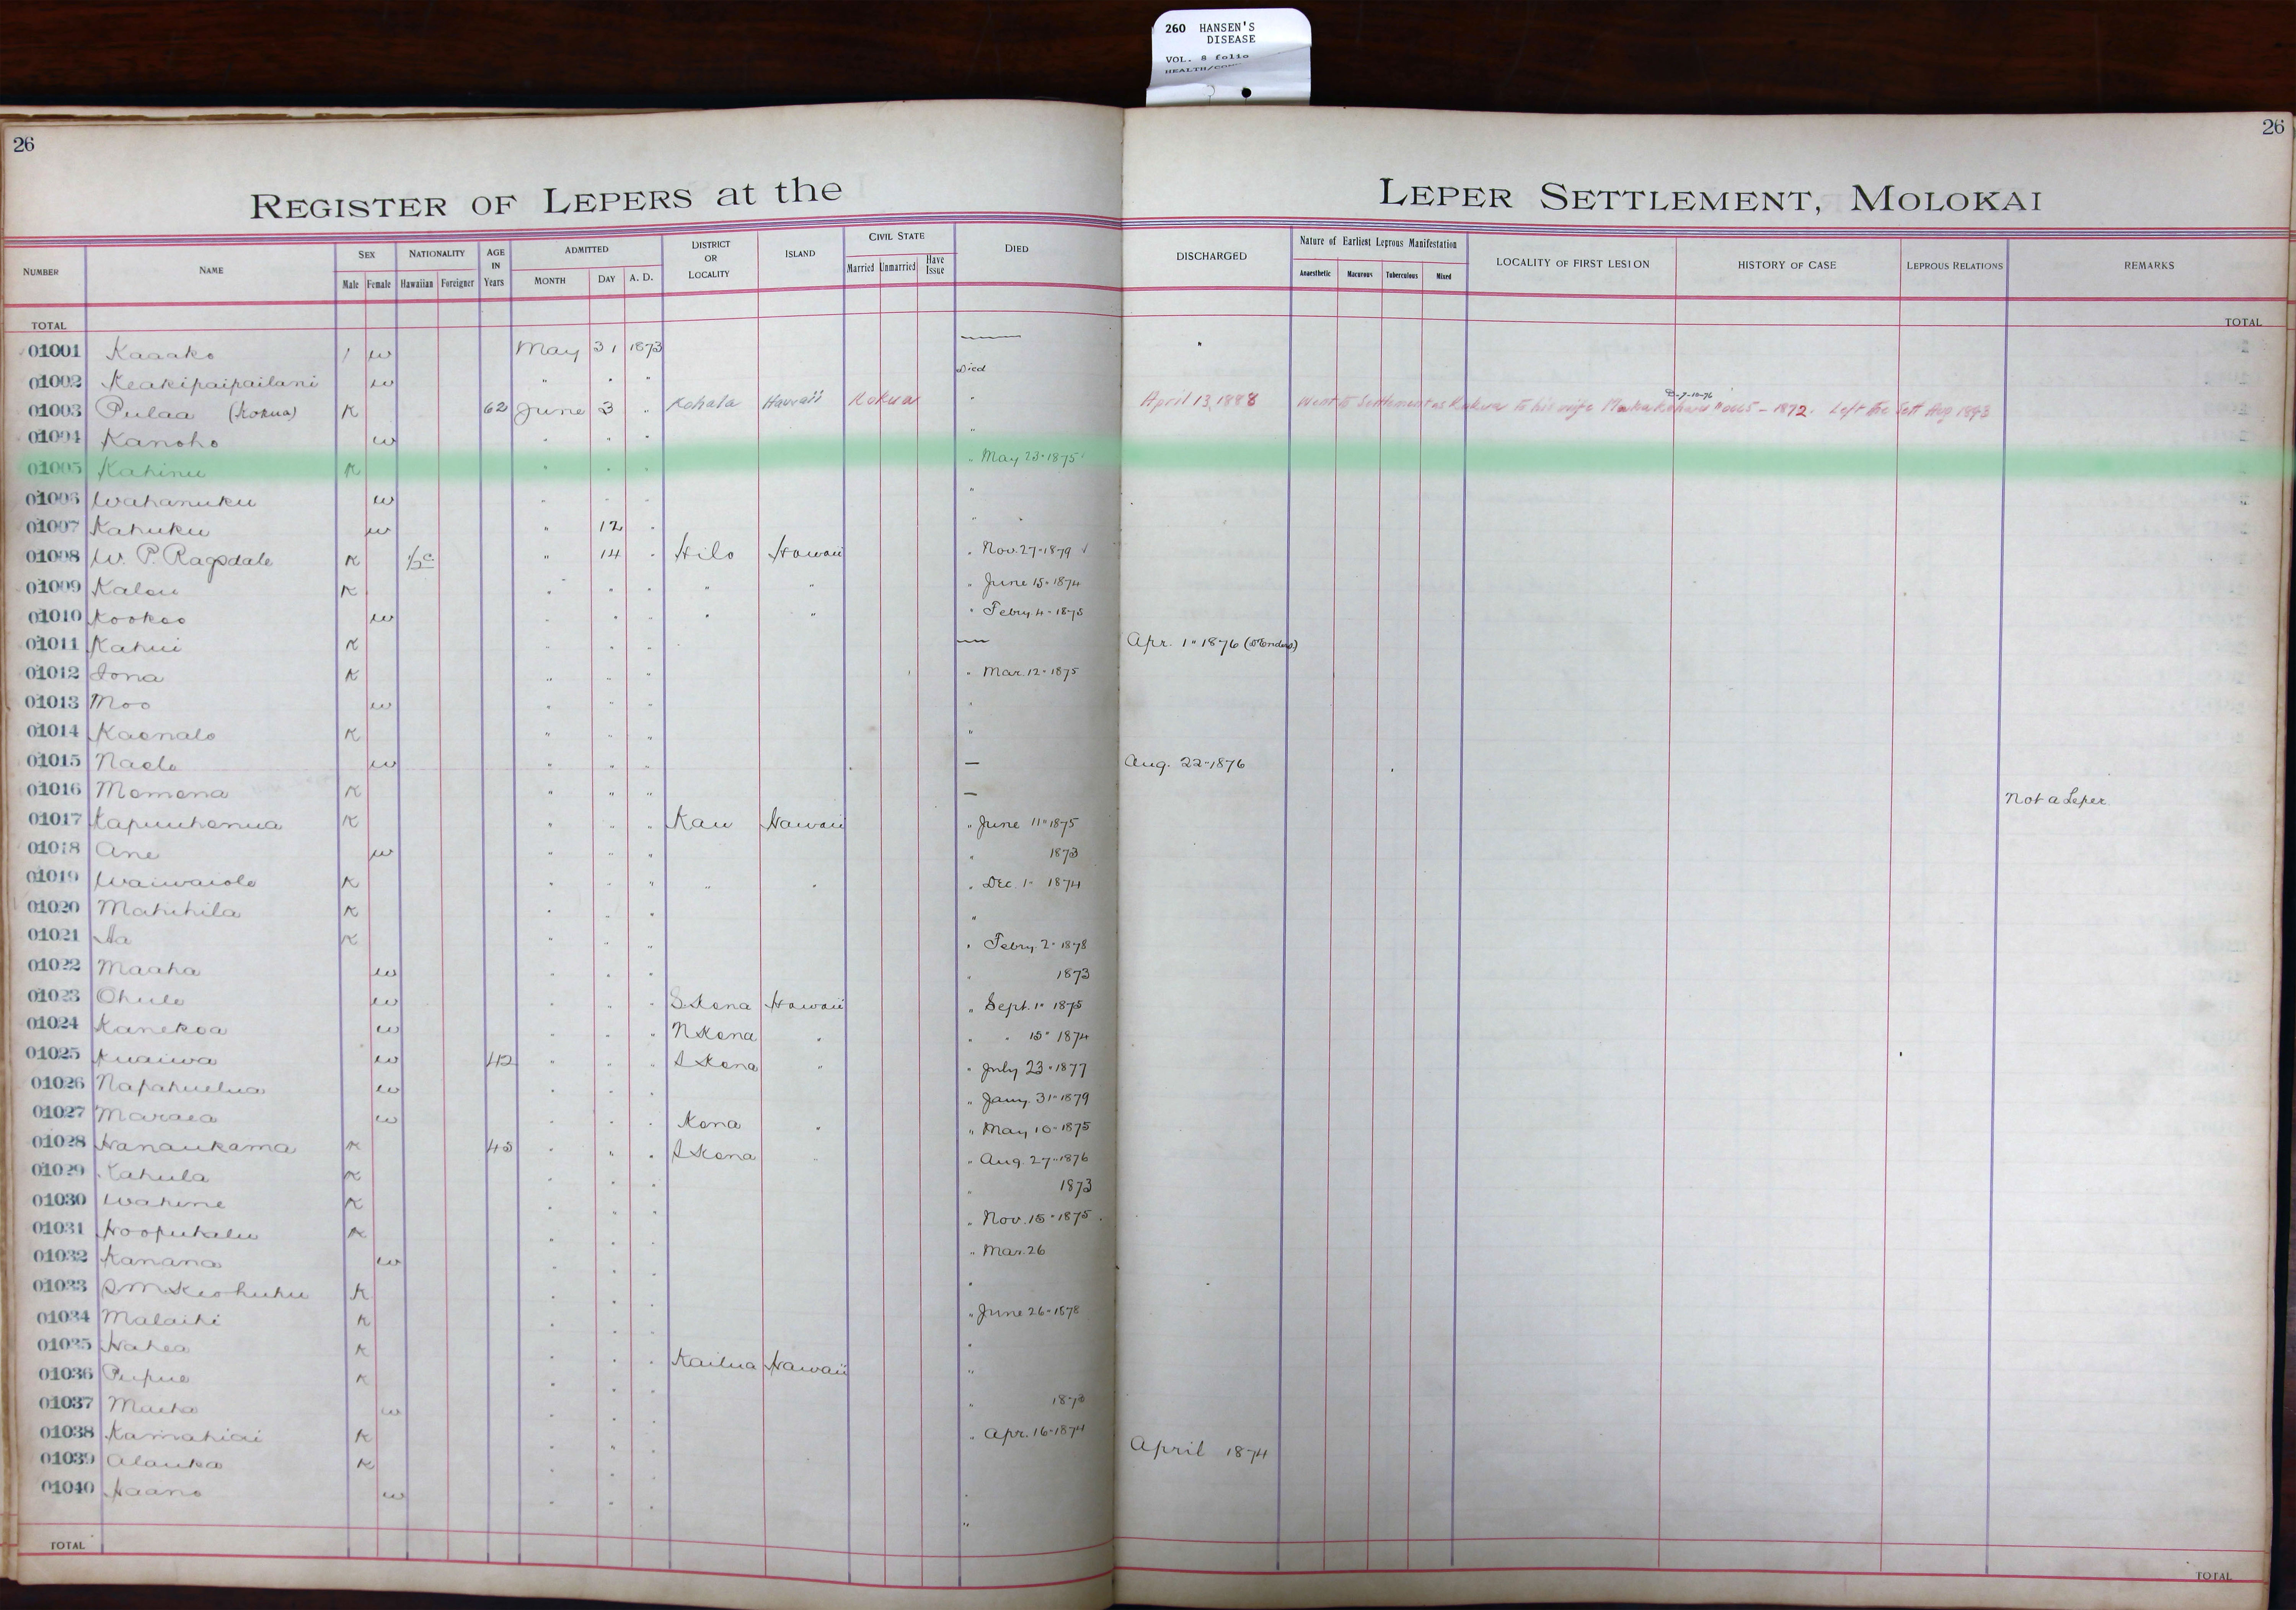 260 HANSEN'S
DISEASE
VOL. 8 folio
HEALTH/
26
26
REGISTER OF LEPERS at the LEPER SETTLEMENT, MOLOKAI
NUMBER NAME SEX NATIONALITY AGE IN Years ADMITTED DISTRICT OR LOCALITY ISLAND CIVIL STATE DIED DISCHARGED Nature of Earliest Leprous Manifestation LOCALITY OF FIRST LESION HISTORY OF CASE LEPROUS RELATIONS REMARKS
Male Female Hawaiian Foreigner MONTH DAY A. D. Married Unmarried Have Issue Anaesthetic Macurous Tuberculous Mixed
TOTAL TOTAL
01001 Kaaako / w May 31 1873 —
01002 Keakipaipailani w " " " Died
01003 Pulaa (Kokua) K 62 June 3 " Kohala Hawaii Kokua " April 13, 1888 Went to Settlement as Kokua to his wife - 1872. Left the Sett Aug 1893
D-7-10-76
01004 Kanoho w " " " "
01005 Kahinu K " " " " May 23-1875
01006 Wahanuku w " " " "
01007 Kahuku w " 12 " "
01008 W. P. Ragsdale K ½ c " 14 " Hilo Hawaii " Nov. 27-1879 √
01009 Kalou K " " " " " " June 15-1874
01010 Kookoo w " " " " " " Febry 4-1875
01011 Kahui K " " " — Apr. 1" 1876
01012 Iona K " " " " Mar. 12-1875
01013 Moo w " " " "
01014 Kaonalo K " " " "
01015 Naelo w " " " — Aug. 22-1876
01016 Momona K " " " — Not a Leper
01017 Kapuuhonua K " " " Kau Hawaii " June 11" 1875
01018 Ane w " " " " 1873
01019 Waiwaiole K " " " " " " Dec. 1- 1874
01020 Mahihila K " " " "
01021 Aa K " " " " Febry. 2-1878
01022 Maaha w " " " " 1873
01023 Ohule w " " " S. Kona Hawaii " Sept. 1" 1875
01024 Kanekoa w " " " N Kona " " " 15" 1874
01025 Kuaiwa w 42 " " " S Kona " " July 23-1877
01026 Napahuelua w " " " " Jany. 31-1879
01027 Maraea w " " " Kona " " May 10-1875
01028 Hanaukama K 45 " " " S Kona " " Aug. 27-1876
01029 Kahula K " " " " 1873
01030 Wahine K " " " " Nov. 15-1875
01031 Hoopukalu K " " " " Mar. 26
01032 Kanana w " " " "
01033 S M Keohuhu K " " " " June 26-1878
01034 Malaihi K " " " "
01035 Hahea K " " " Kailua Hawaii "
01036 Pupue K " " " " 1873
01037 Maeha w " " " " Apr. 16-1874
01038 Kamahiai K " " " April 1874
01039 Alauka K " " " "
01040 Haano w " " " "
TOTAL TOTAL